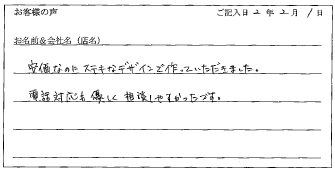 お客様の声 ご記入日 2 年 2 月 1 日
お名前&会社名（店名）
安価なのに ステキなデザインで作っていただきました。
電話対応も優しく 相談しやすかったです。